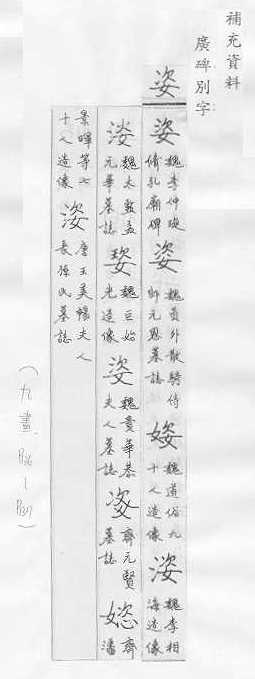 補充資料
廣碑別字
姿
姿 魏李仲璇
脩孔廟碑
姿 魏員外散騎侍
郎元恩墓誌
魏道俗九
十人造像
魏李相
海造像
魏太尉孟
元華墓誌
魏巨始
光造像
姿 魏賁華恭
夫人墓誌
齊元賢
墓誌
齊
潘
景暉等七
十人造像
唐王美暢夫人
長孫氏墓誌
(九畫, P36~P37)